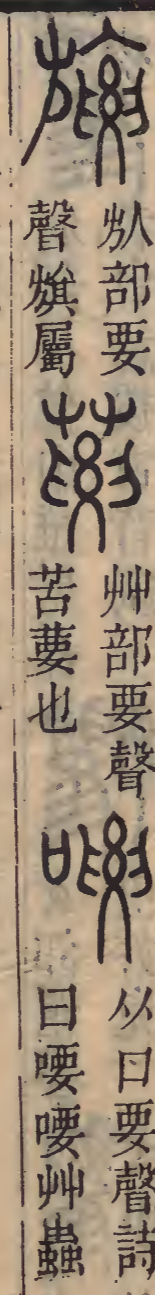 㫏
㫃部要聲
旗屬
葽
艸部要聲
苦葽也
喓
从口要聲詩
曰喓喓艸蟲